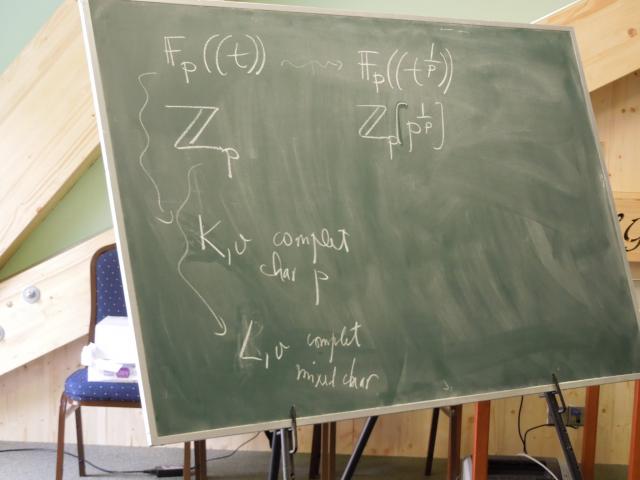 𝔽_p((t)) ⇝ 𝔽_p((t^{1/p}))
ℤ_p ℤ_p[p^{1/p}]
K, v complet
char p
L, v complet
mixed char